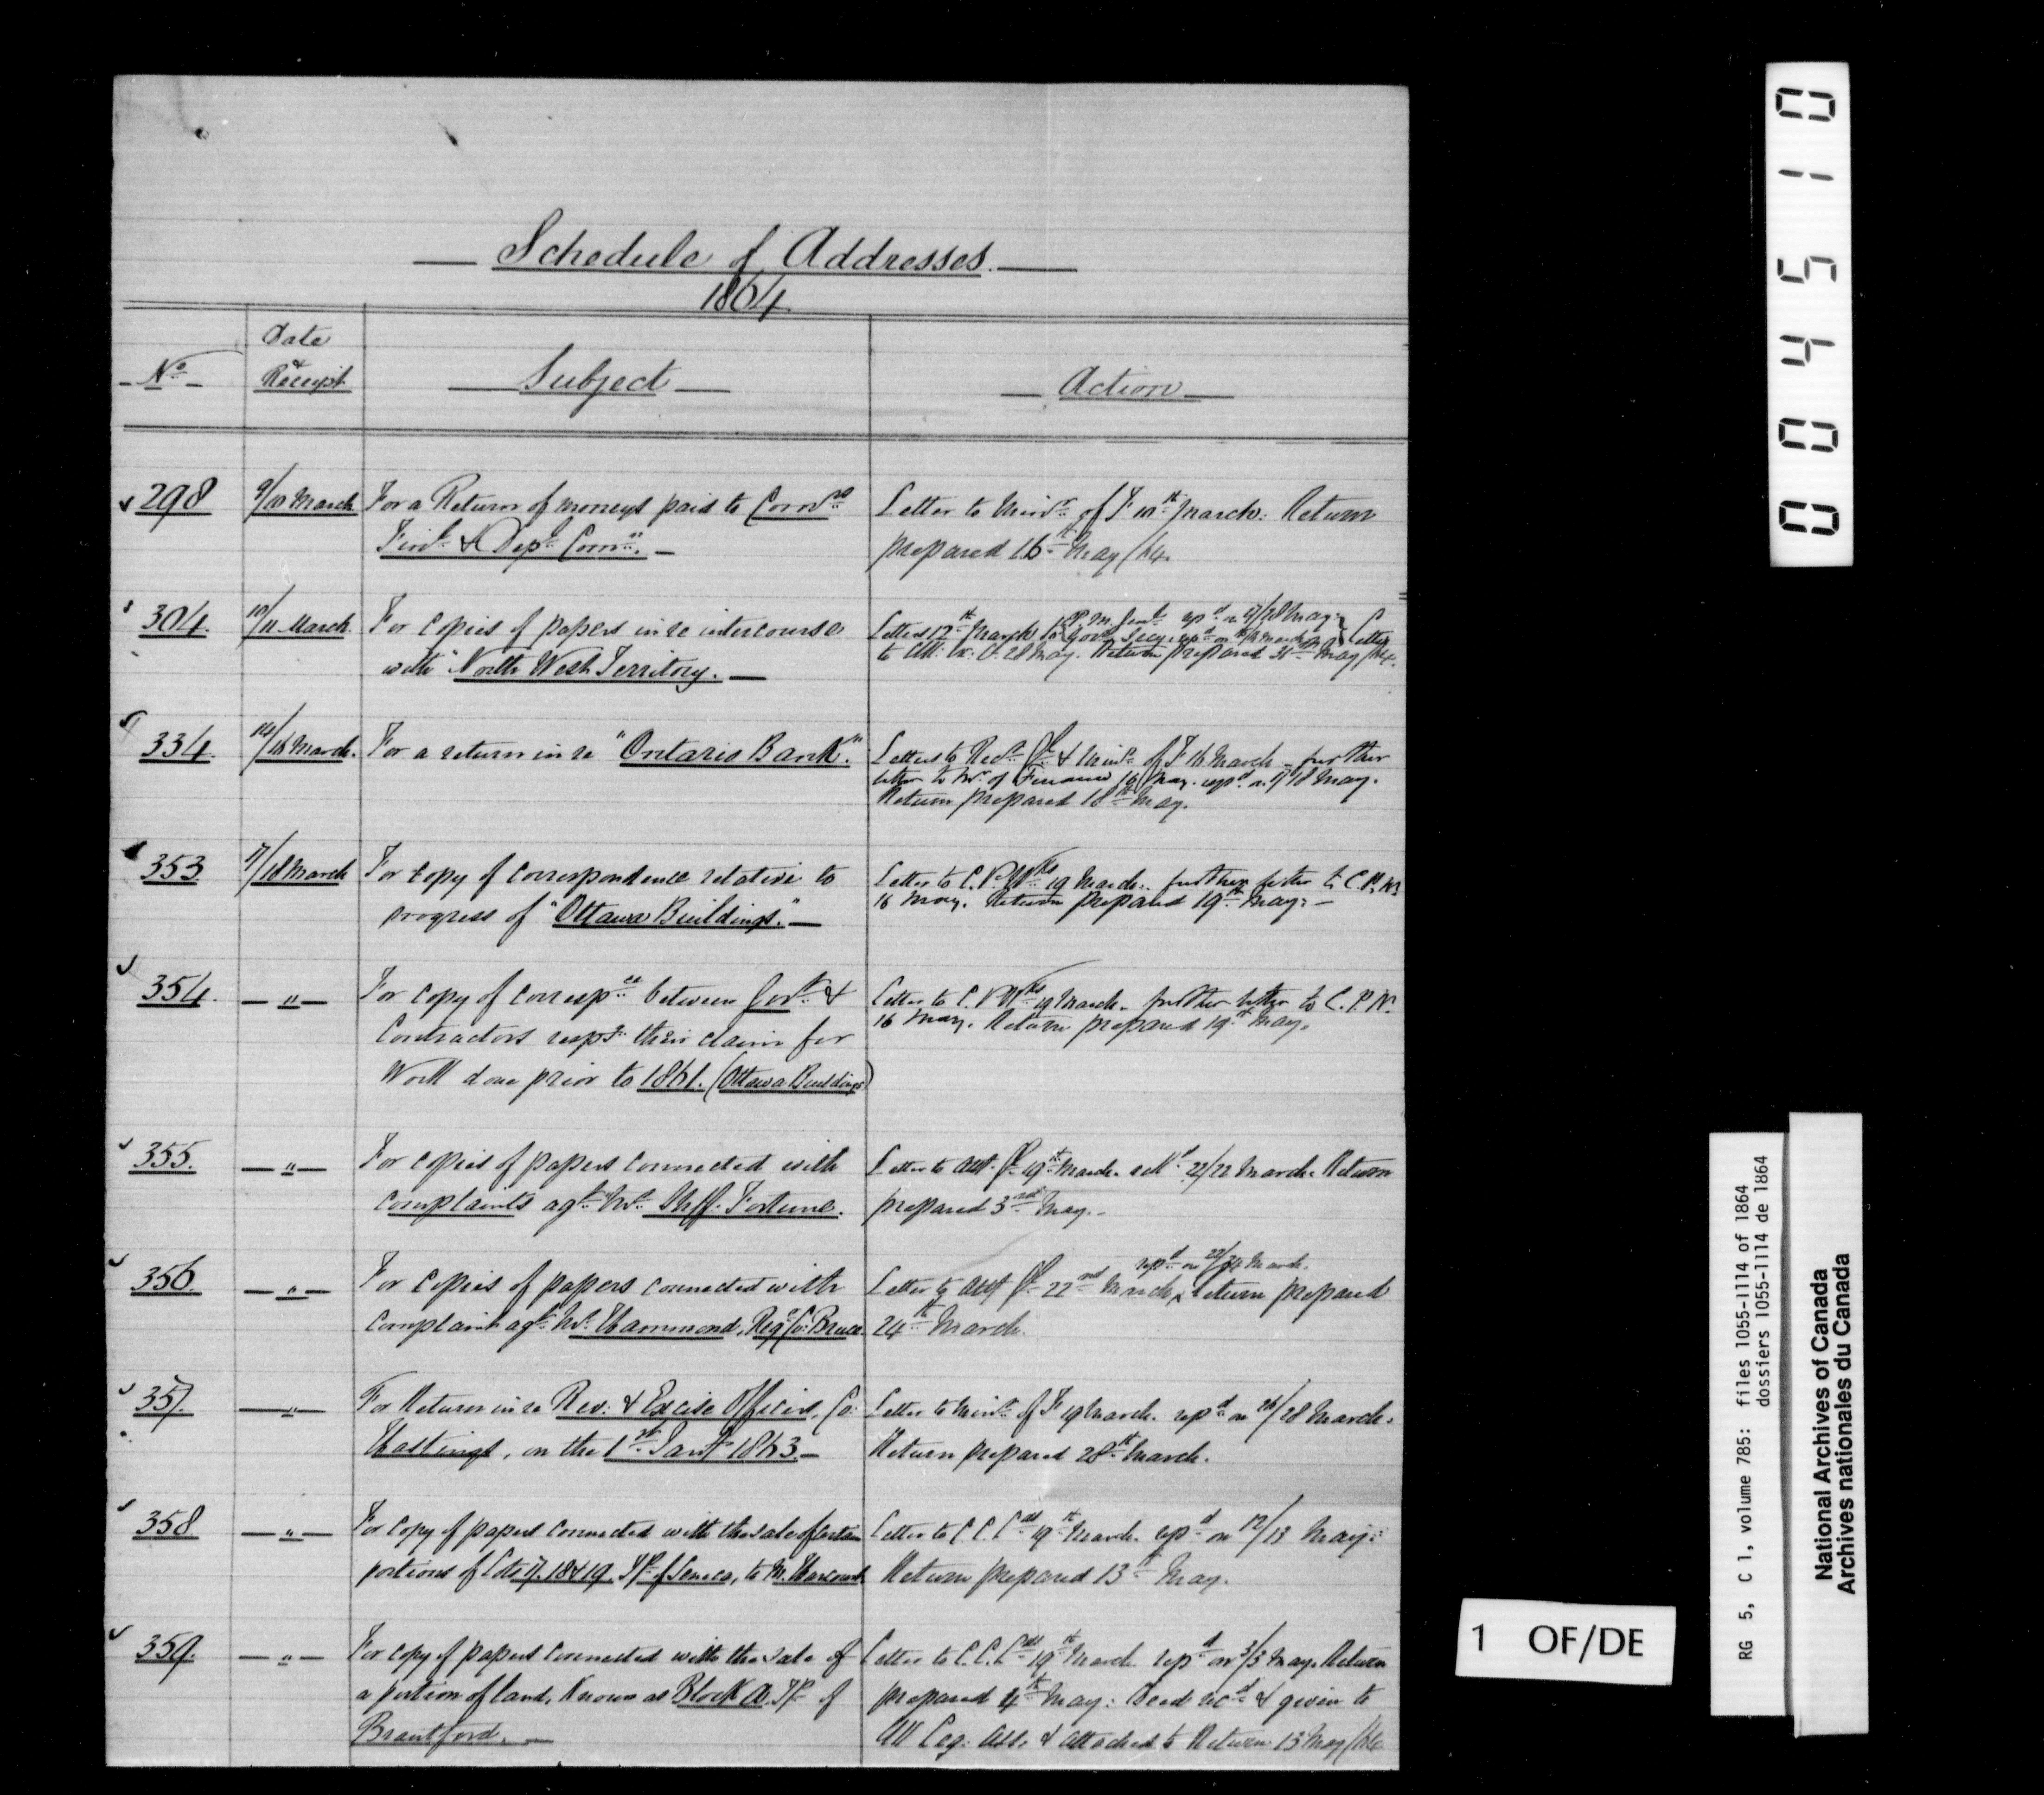 Schedule of Addresses.
1864.
No
Date
of
Receipt
Subject
Action
298
9/10 March
For a Return of moneys paid to Comrs
Finl & Depl Comn. —
Letter to Minr of F 10th March. Return
prepared 16th May /64.
304.
10/11 March.
For copies of papers in re intercourse
with "North West Territory. —
Letters 12th March to P.M. Genl repd on 27/28 May.
Letter
to 28 May. Return prepared 31st May /64.
334.
14/16 March.
For a return in re "Ontario Bank".
Letters to Recr Gl & Minr of F 16 March – further
letter to Mr. of Finance 16 May. repd on 17/18 May.
Return prepared 18th May.
353
17/18 March
For copy of correspondence relative to
progress of "Ottawa Buildings." —
Letter to C. P. Wks 19 March. further letter to C.P.W.
16 May. Return prepared 19th May. –
354.
— " —
For copy of correspce between Govt &
Contractors respg their claim for
Work done prior to 1861. (Ottawa Buildings)
Letter to C. P. Wks 19 March. further letter to C. P. W.
16 May. Return prepared 19th May.
355.
— " —
For copies of papers connected with
complaints agt Mr Shff. Fortune.
Letter to Att. Gl 19th March. 22/22 March. Return
prepared 3rd May. –
356.
— " —
For copies of papers connected with
complaint agt Mr. Hammond, Regr Co: Bruce.
repd on 22/24 March.
Letter to Att Gl 22nd March, Return prepared
24th March.
357.
— " —
For Return in re Rev: & Excise Officers, Co:
Hastings, on the 1st Jany 1863. –
Letter to Minr of F. 19 March. repd on 26/28 March.
Return prepared 28th March.
358
— " —
For copy of papers connected with the sale of certain
portions of Lots 17. 18 & 19. Tp of Seneca, to Mr. Harcourt.
Letter to C. C. Lds 19th March. repd on 12/13 May:
Return prepared 13th May.
359.
— " —
For copy of papers connected with the sale of
a portion of land, known as Block A. Tp of
Brantford. —
Letter to C. C. Lds 19th March repd on 3/3 May. Return
prepared 4th May: Deed recd & given to
Leg: Ass. & attached to Return 13 May /64
004510
1 OF/DE
RG 5, C 1, volume 785: files 1055-1114 of 1864
dossiers 1055-1114 de 1864
National Archives of Canada
Archives nationales du Canada